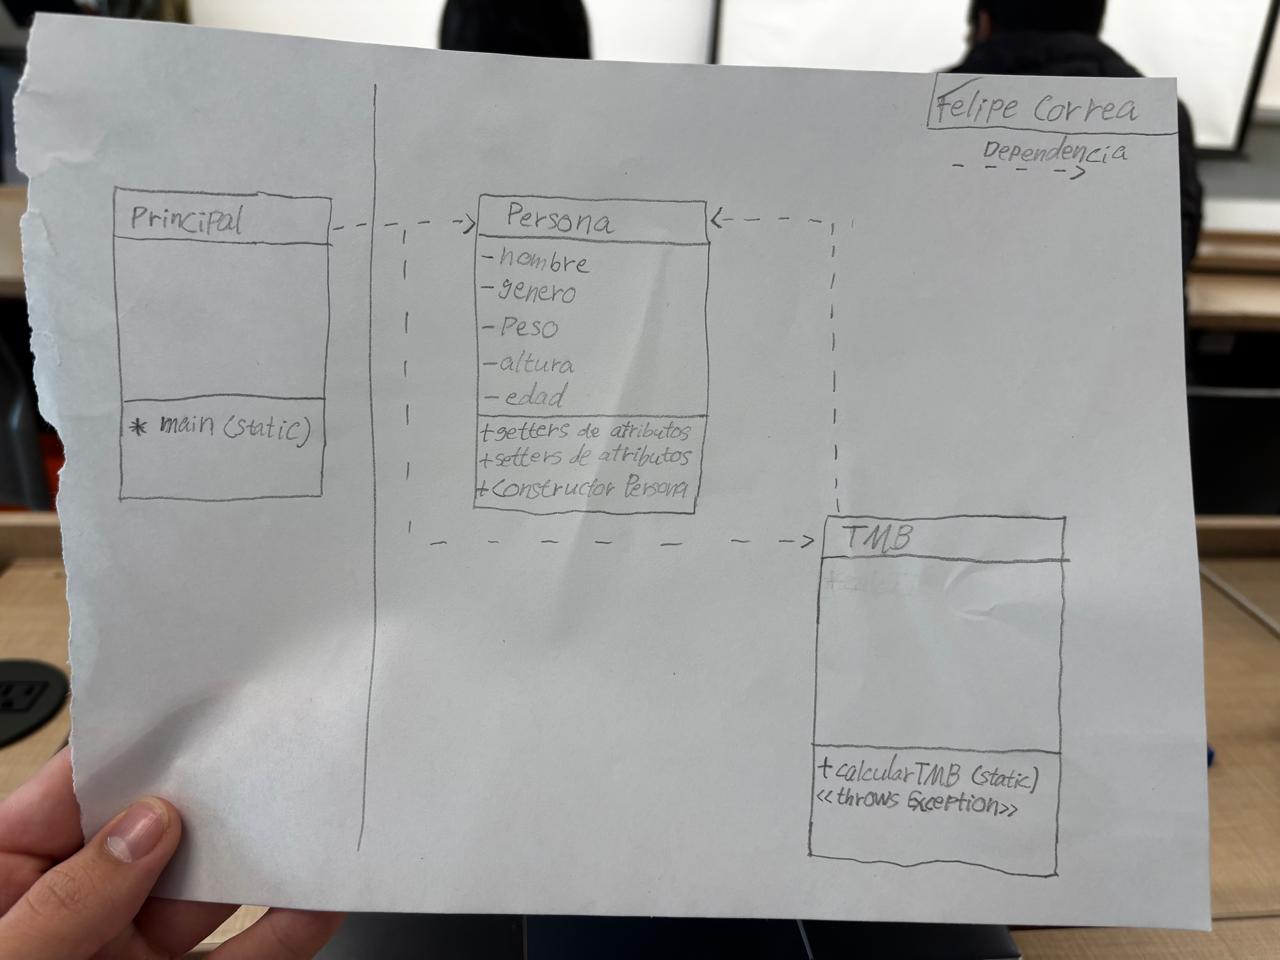 Felipe Correa
Dependencia
Principal
* main (static)
Persona
- nombre
- genero
- Peso
- altura
- edad
+ getters de atributos
+ setters de atributos
+ Constructor Persona
TMB
+ calcularTMB (static)
<<throws Exception>>